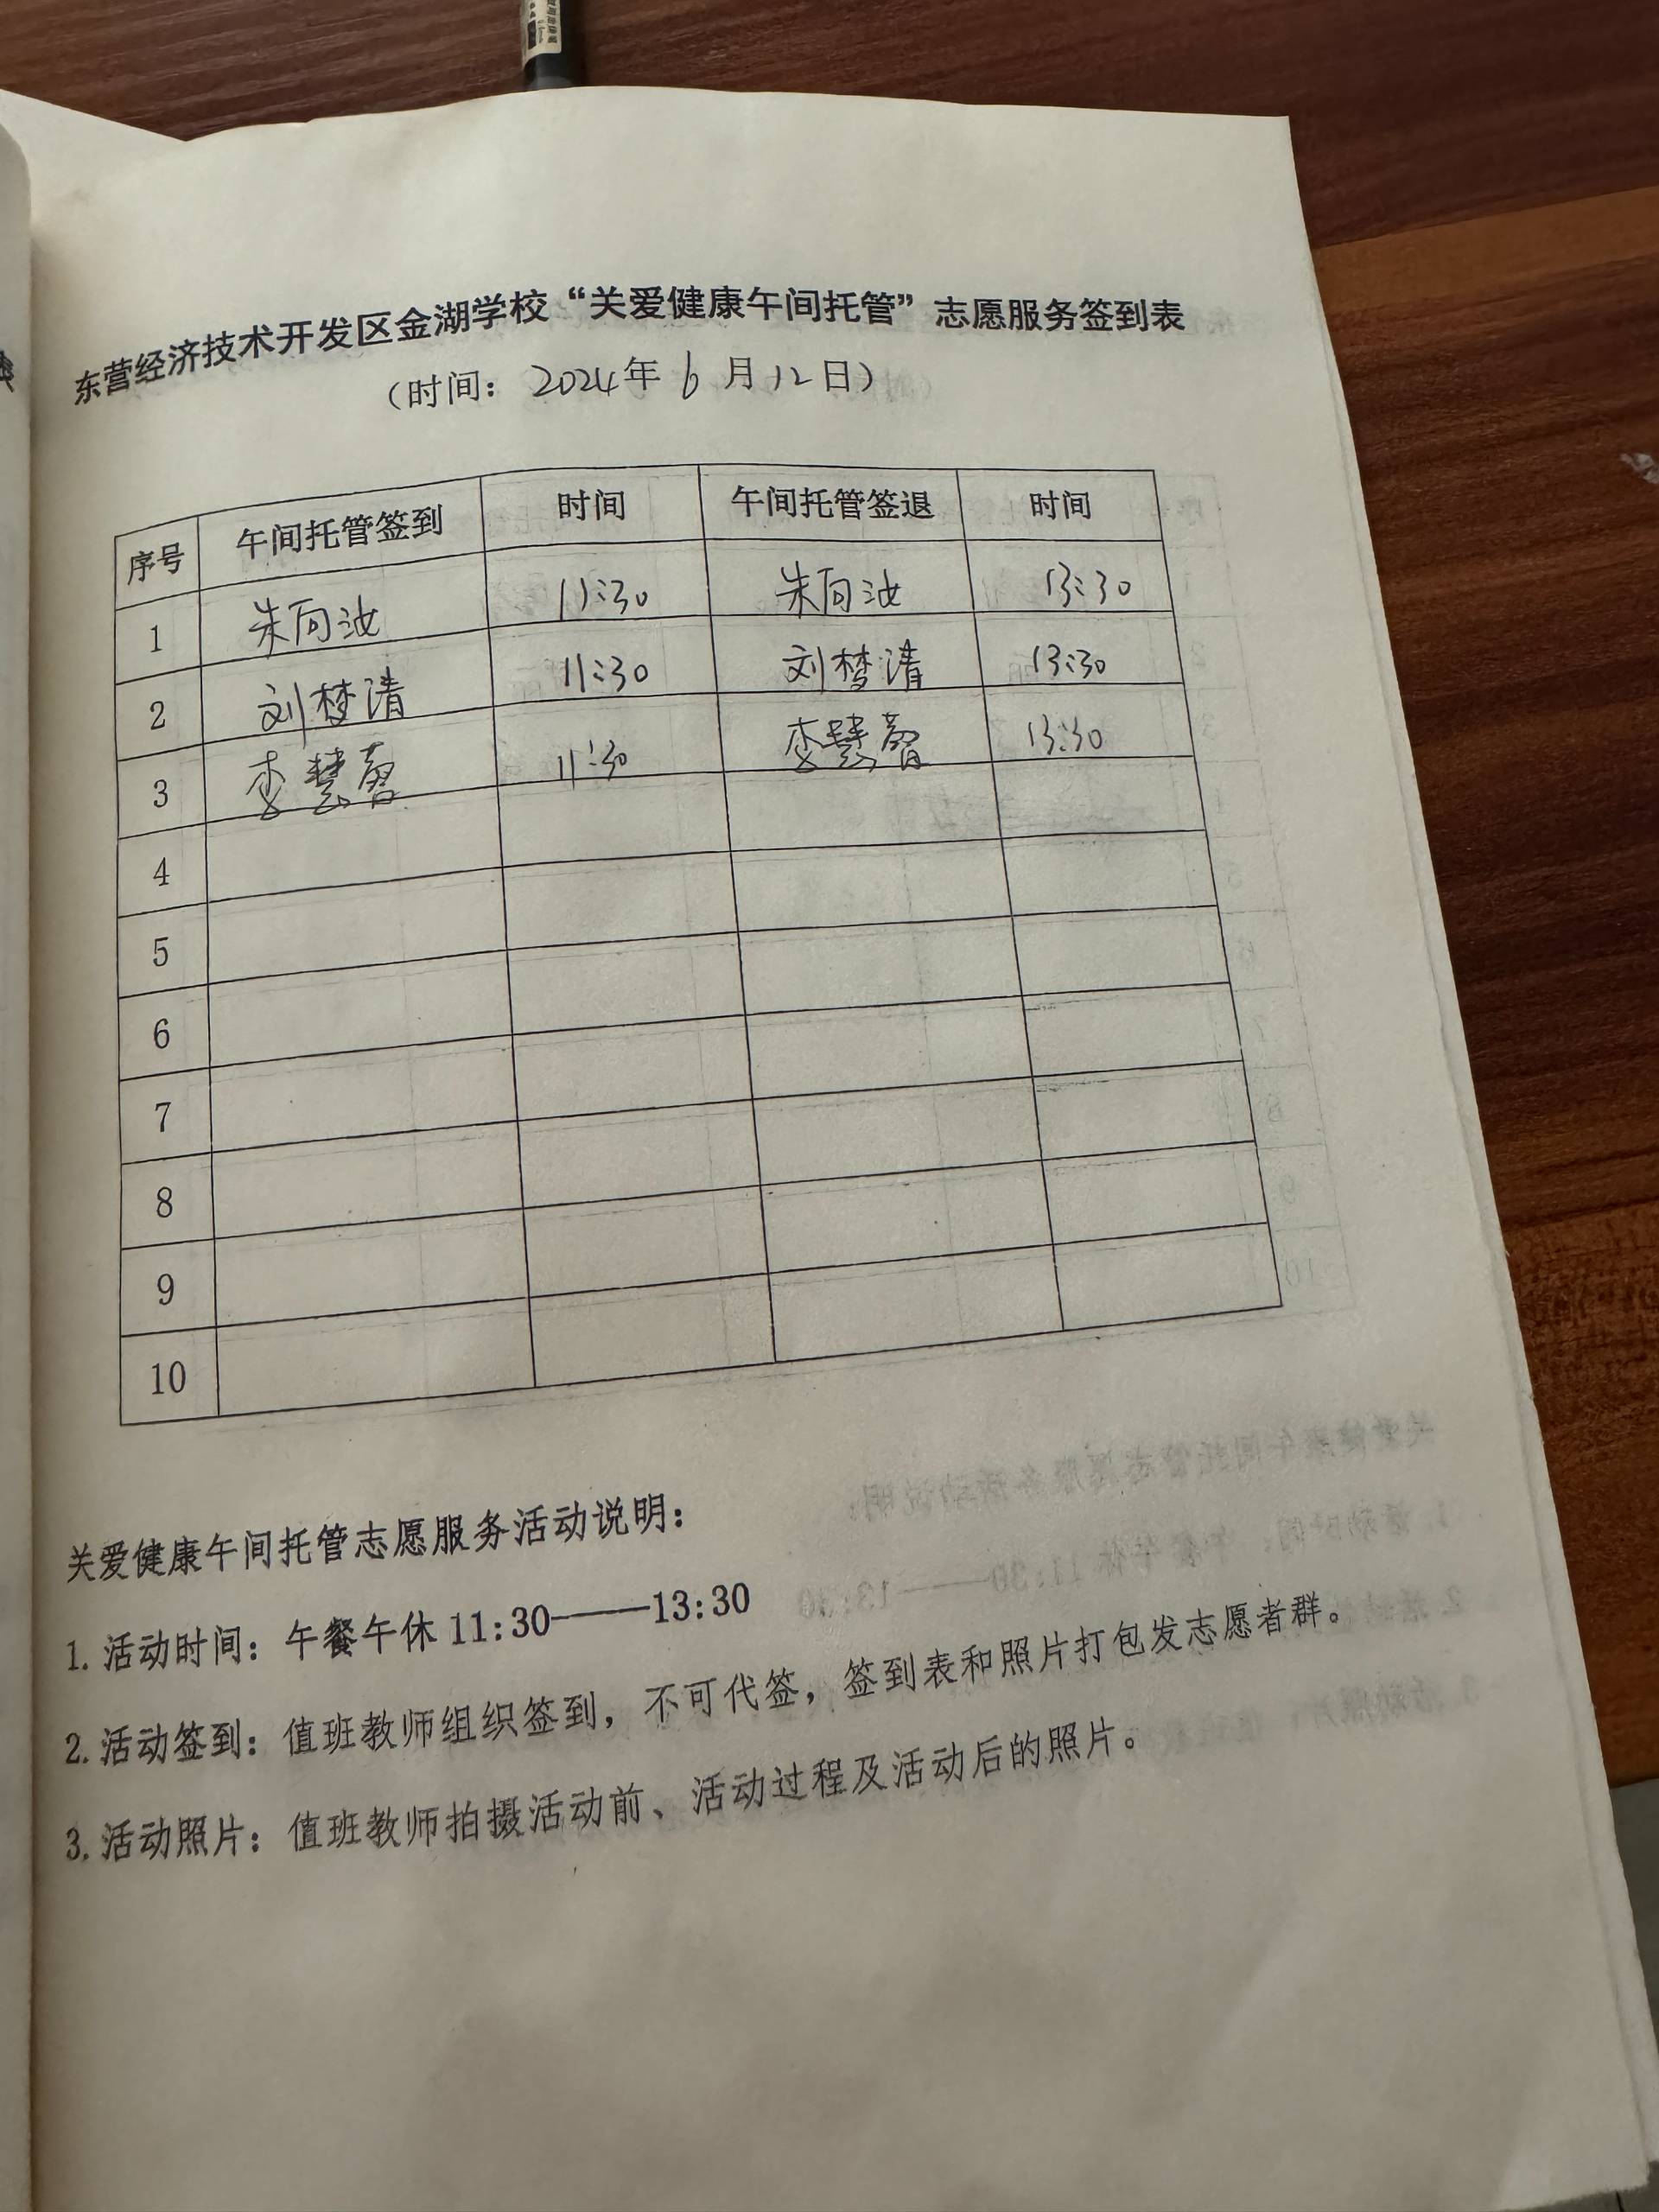 东营经济技术开发区金湖学校“关爱健康午间托管”志愿服务签到表
（时间：2024年6月12日）
序号 午间托管签到 时间 午间托管签退 时间
1 朱向汝 11:30 朱向汝 13:30
2 刘梦清 11:30 刘梦清 13:30
3 李慧 11:30 李慧 13:30
4
5
6
7
8
9
10
关爱健康午间托管志愿服务活动说明：
1.活动时间：午餐午休11:30——13:30
2.活动签到：值班教师组织签到，不可代签，签到表和照片打包发志愿者群。
3.活动照片：值班教师拍摄活动前、活动过程及活动后的照片。